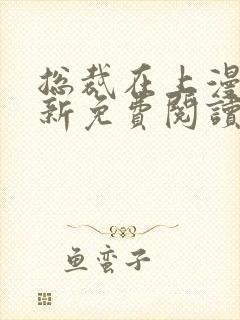 总裁在上漫
新免費閱讀
鱼蛮子